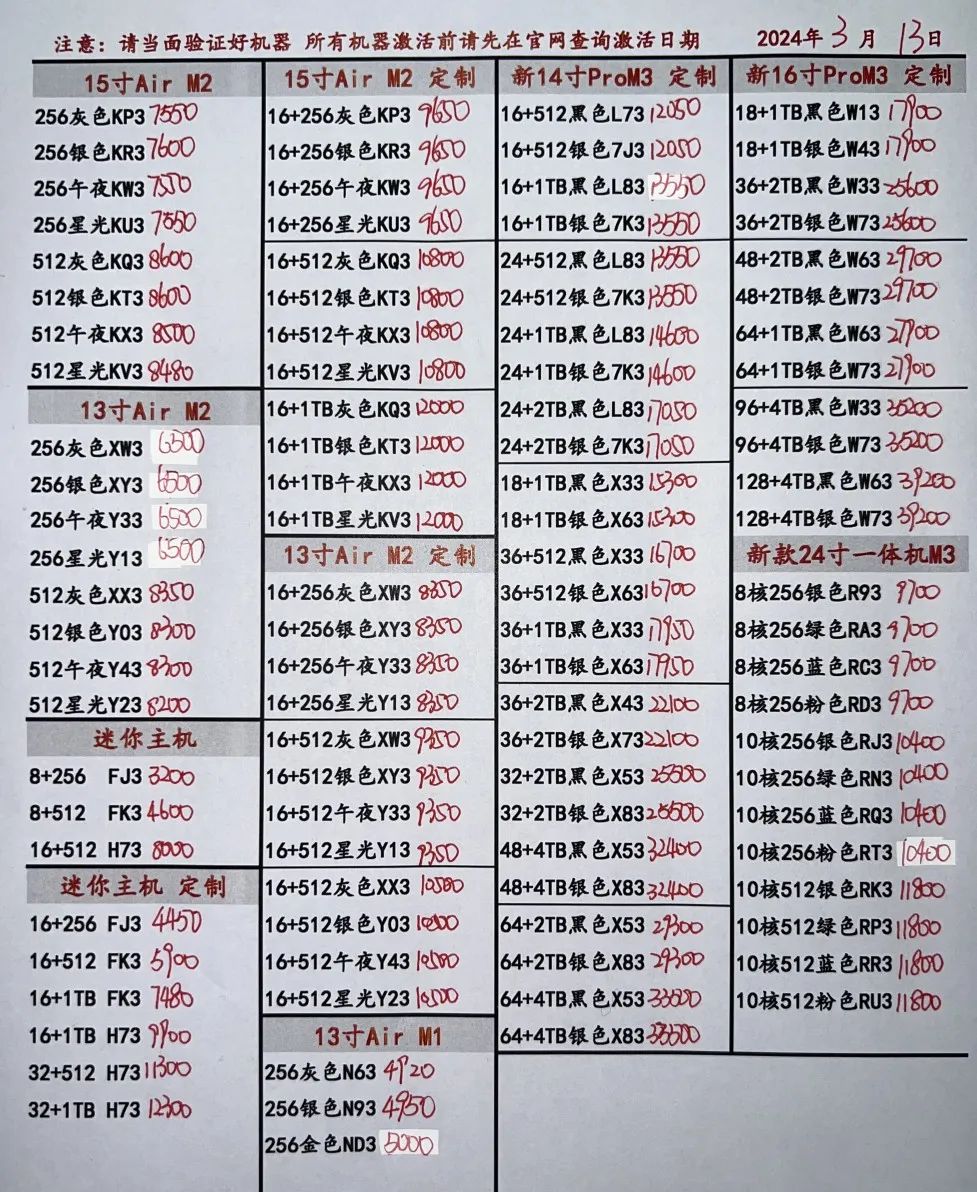 注意: 请当面验证好机器 所有机器激活前请先在官网查询激活日期 2024年 3 月 13日
15寸Air M2
256灰色KP3 7550
256银色KR3 7600
256午夜KW3 7550
256星光KU3 7550
512灰色KQ3 8600
512银色KT3 8600
512午夜KX3 8500
512星光KV3 8480
13寸Air M2
256灰色XW3 6500
256银色XY3 6500
256午夜Y33 6500
256星光Y13 6500
512灰色XX3 8350
512银色Y03 8300
512午夜Y43 8300
512星光Y23 8200
迷你主机
8+256 FJ3 3200
8+512 FK3 4600
16+512 H73 8000
迷你主机 定制
16+256 FJ3 4450
16+512 FK3 5900
16+1TB FK3 7480
16+1TB H73 9900
32+512 H73 11300
32+1TB H73 12300
15寸Air M2 定制
16+256灰色KP3 9650
16+256银色KR3 9650
16+256午夜KW3 9650
16+256星光KU3 9650
16+512灰色KQ3 10800
16+512银色KT3 10800
16+512午夜KX3 10800
16+512星光KV3 10800
16+1TB灰色KQ3 12000
16+1TB银色KT3 12000
16+1TB午夜KX3 12000
16+1TB星光KV3 12000
13寸Air M2 定制
16+256灰色XW3 8350
16+256银色XY3 8350
16+256午夜Y33 8350
16+256星光Y13 8350
16+512灰色XW3 9350
16+512银色XY3 9350
16+512午夜Y33 9350
16+512星光Y13 9350
16+512灰色XX3 10500
16+512银色Y03 10500
16+512午夜Y43 10500
16+512星光Y23 10500
13寸Air M1
256灰色N63 4920
256银色N93 4950
256金色ND3 5000
新14寸ProM3 定制
16+512黑色L73 12050
16+512银色7J3 12050
16+1TB黑色L83 13550
16+1TB银色7K3 13550
24+512黑色L83 13550
24+512银色7K3 13550
24+1TB黑色L83 14600
24+1TB银色7K3 14600
24+2TB黑色L83 17050
24+2TB银色7K3 17050
18+1TB黑色X33 15300
18+1TB银色X63 15300
36+512黑色X33 16700
36+512银色X63 16700
36+1TB黑色X33 17950
36+1TB银色X63 17950
36+2TB黑色X43 22100
36+2TB银色X73 22100
32+2TB黑色X53 25500
32+2TB银色X83 25500
48+4TB黑色X53 32400
48+4TB银色X83 32400
64+2TB黑色X53 29300
64+2TB银色X83 29300
64+4TB黑色X53 33500
64+4TB银色X83 33500
新16寸ProM3 定制
18+1TB黑色W13 17900
18+1TB银色W43 17900
36+2TB黑色W33 25600
36+2TB银色W73 25600
48+2TB黑色W63 29700
48+2TB银色W73 29700
64+1TB黑色W63 27900
64+1TB银色W73 27900
96+4TB黑色W33 35200
96+4TB银色W73 35200
128+4TB黑色W63 39200
128+4TB银色W73 39200
新款24寸一体机M3
8核256银色R93 9700
8核256绿色RA3 9700
8核256蓝色RC3 9700
8核256粉色RD3 9700
10核256银色RJ3 10400
10核256绿色RN3 10400
10核256蓝色RQ3 10400
10核256粉色RT3 10400
10核512银色RK3 11800
10核512绿色RP3 11800
10核512蓝色RR3 11800
10核512粉色RU3 11800